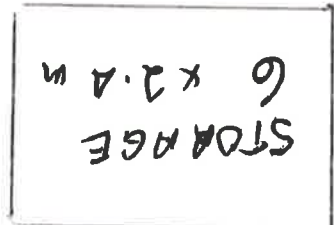 STORAGE
6 x 2.4 m